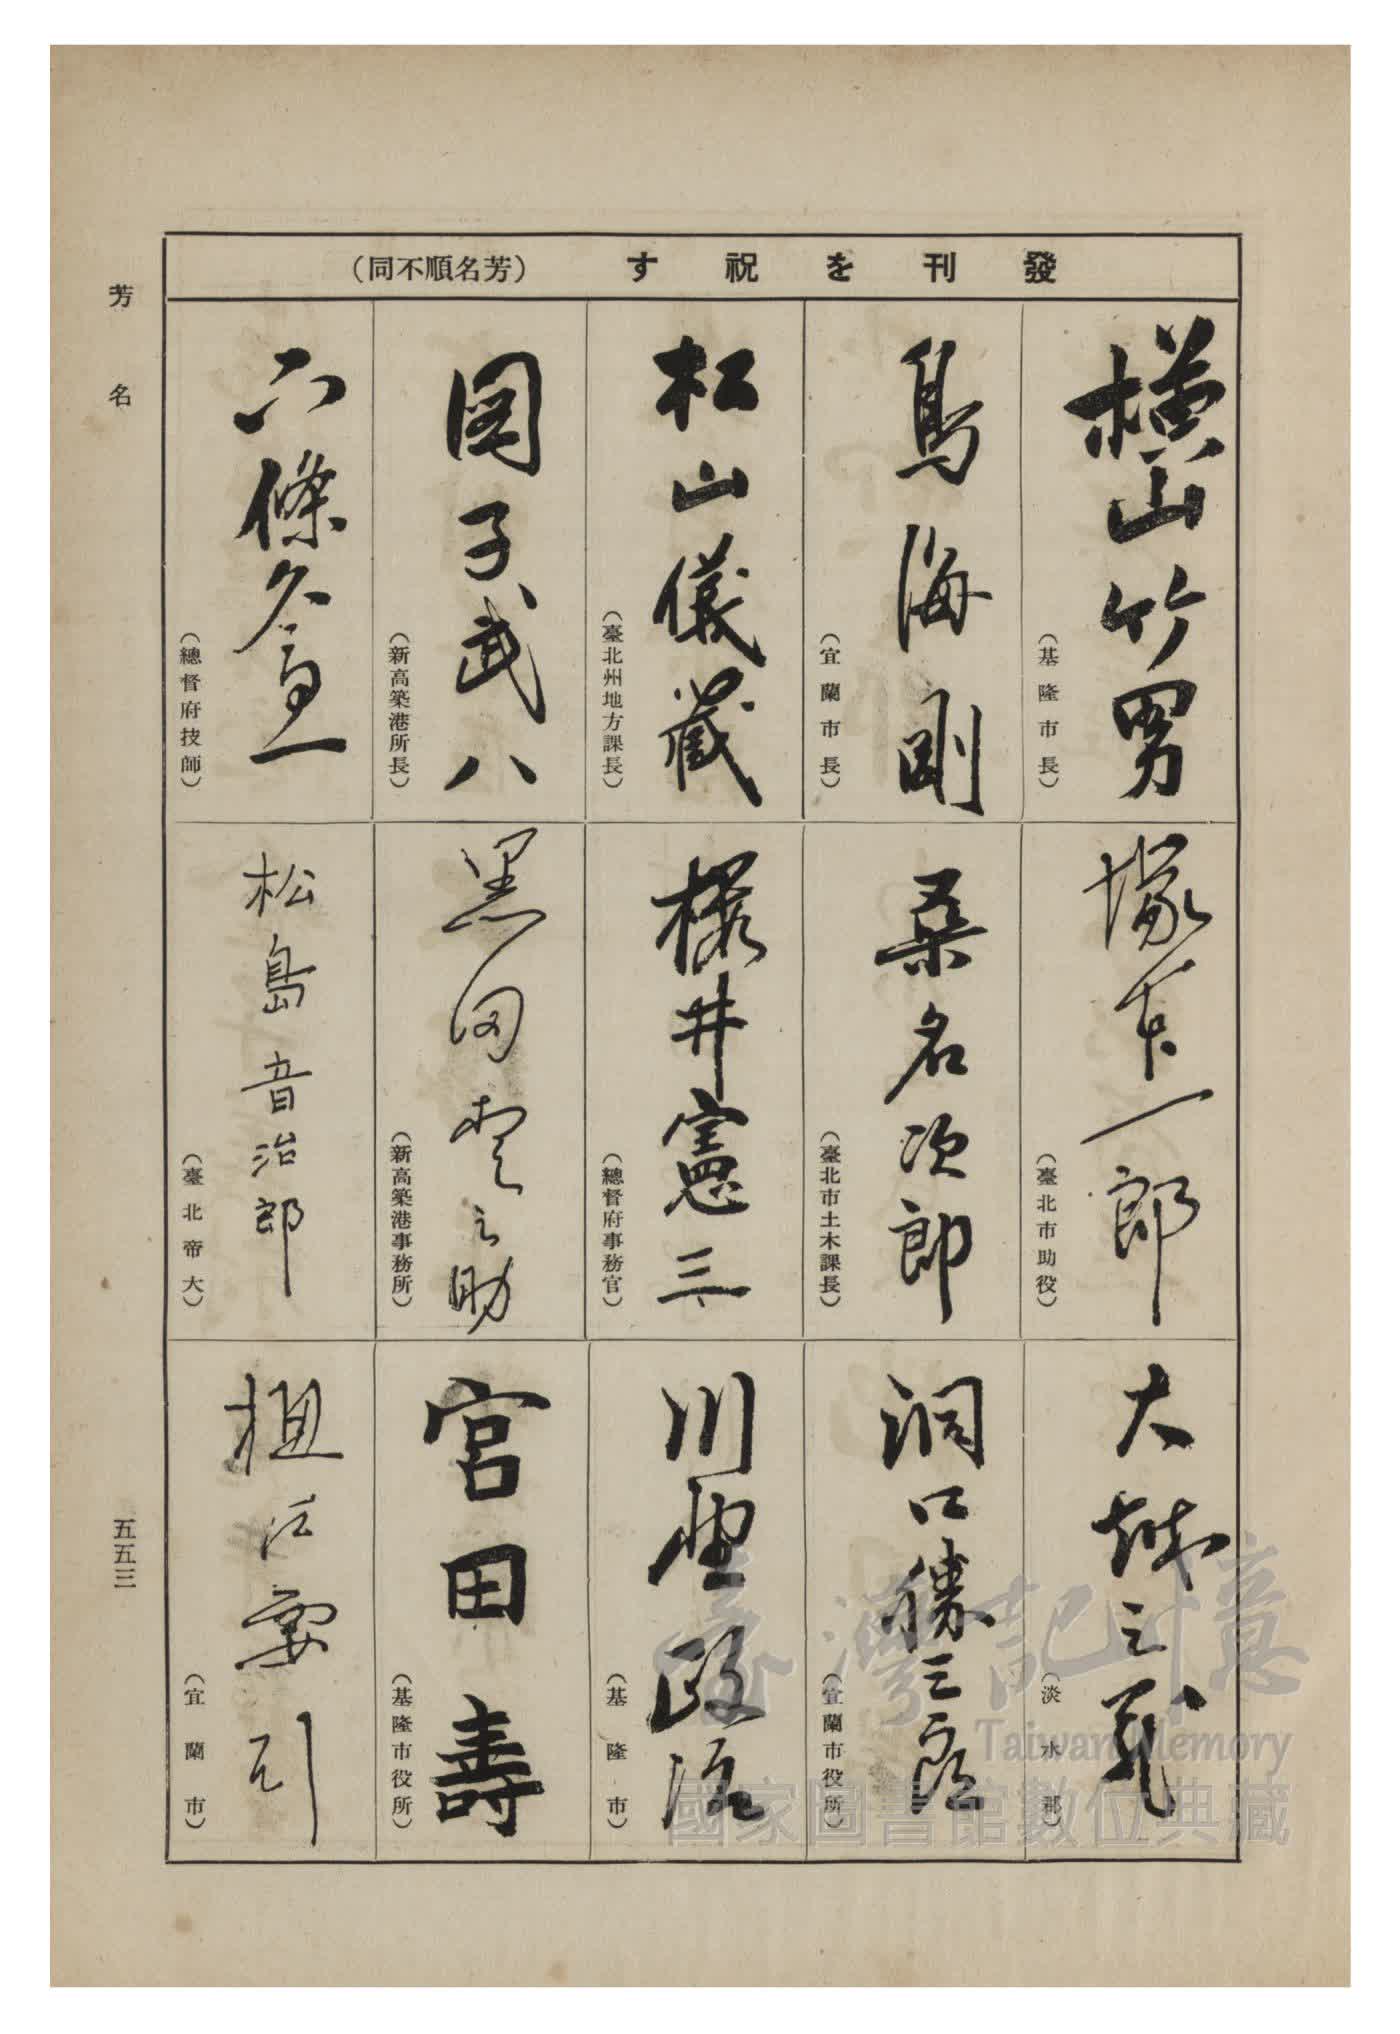 發刊を祝す (芳名順不同)
横山竹男
(基隆市長)
鳥海剛
(宜蘭市長)
松山儀藏
(臺北州地方課長)
團子武八
(新高築港所長)
六條
(總督府技師)
塚本一郎
(臺北市助役)
桑名次郎
(臺北市土木課長)
櫻井憲三
(總督府事務官)
黒田
之助
(新高築港事務所)
松島音治郎
(臺北帝大)
大城之
(淡水郡)
洞口勝三郎
(宜蘭市役所)
川野政治
(基隆市)
宮田壽
(基隆市役所)
江
引
(宜蘭市)
芳名
五五三
臺灣記憶
Taiwan Memory
國家圖書館數位典藏